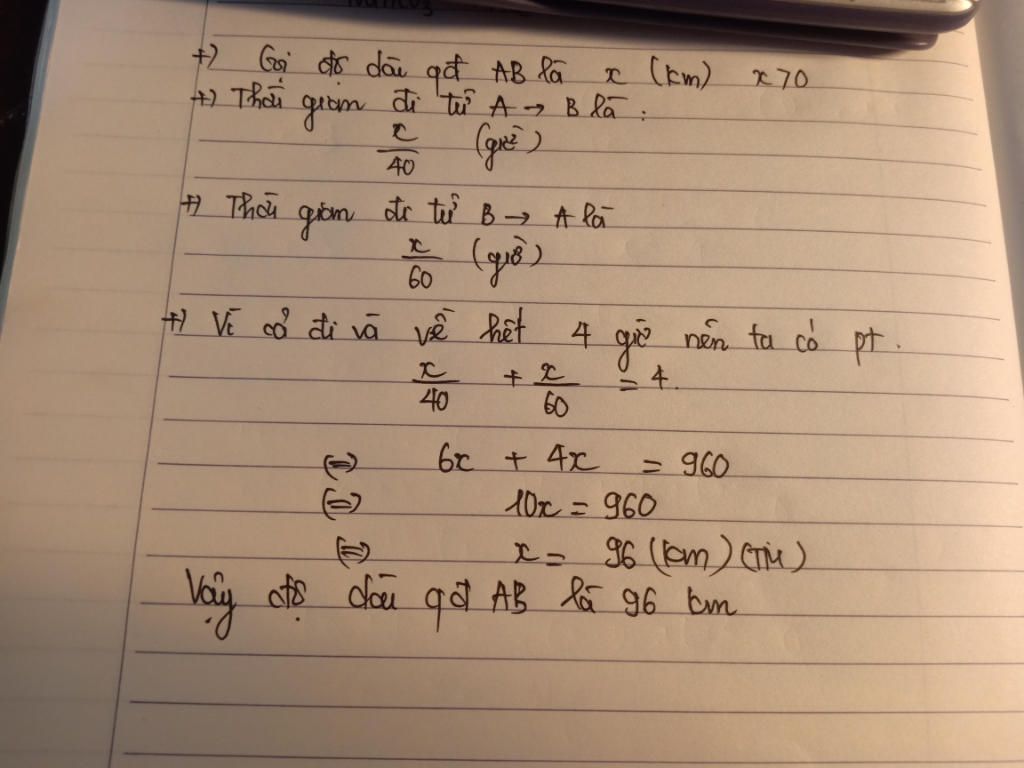 +) Gọi độ dài qđ AB là x (km) x>0
+) Thời gian đi từ A → B là :
x/40 (giờ)
+) Thời gian đi từ B → A là
x/60 (giờ)
+) Vì cả đi và về hết 4 giờ nên ta có pt.
x/40 + x/60 = 4.
(=) 6x + 4x = 960
(=) 10x = 960
(=) x = 96 (km) (TM)
Vậy độ dài qđ AB là 96 km